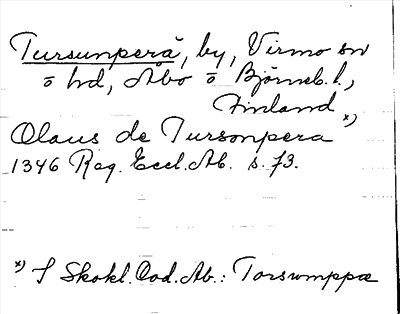 Tursunperä, by, Virmo sn
o hd, Åbo o Björneb. l.,
Finland x)
Olaus de Tursonpera
1346 Reg. Eccl. Ab. s. 73.
x) I Skokl. Cod. Ab.: Torsumppæ